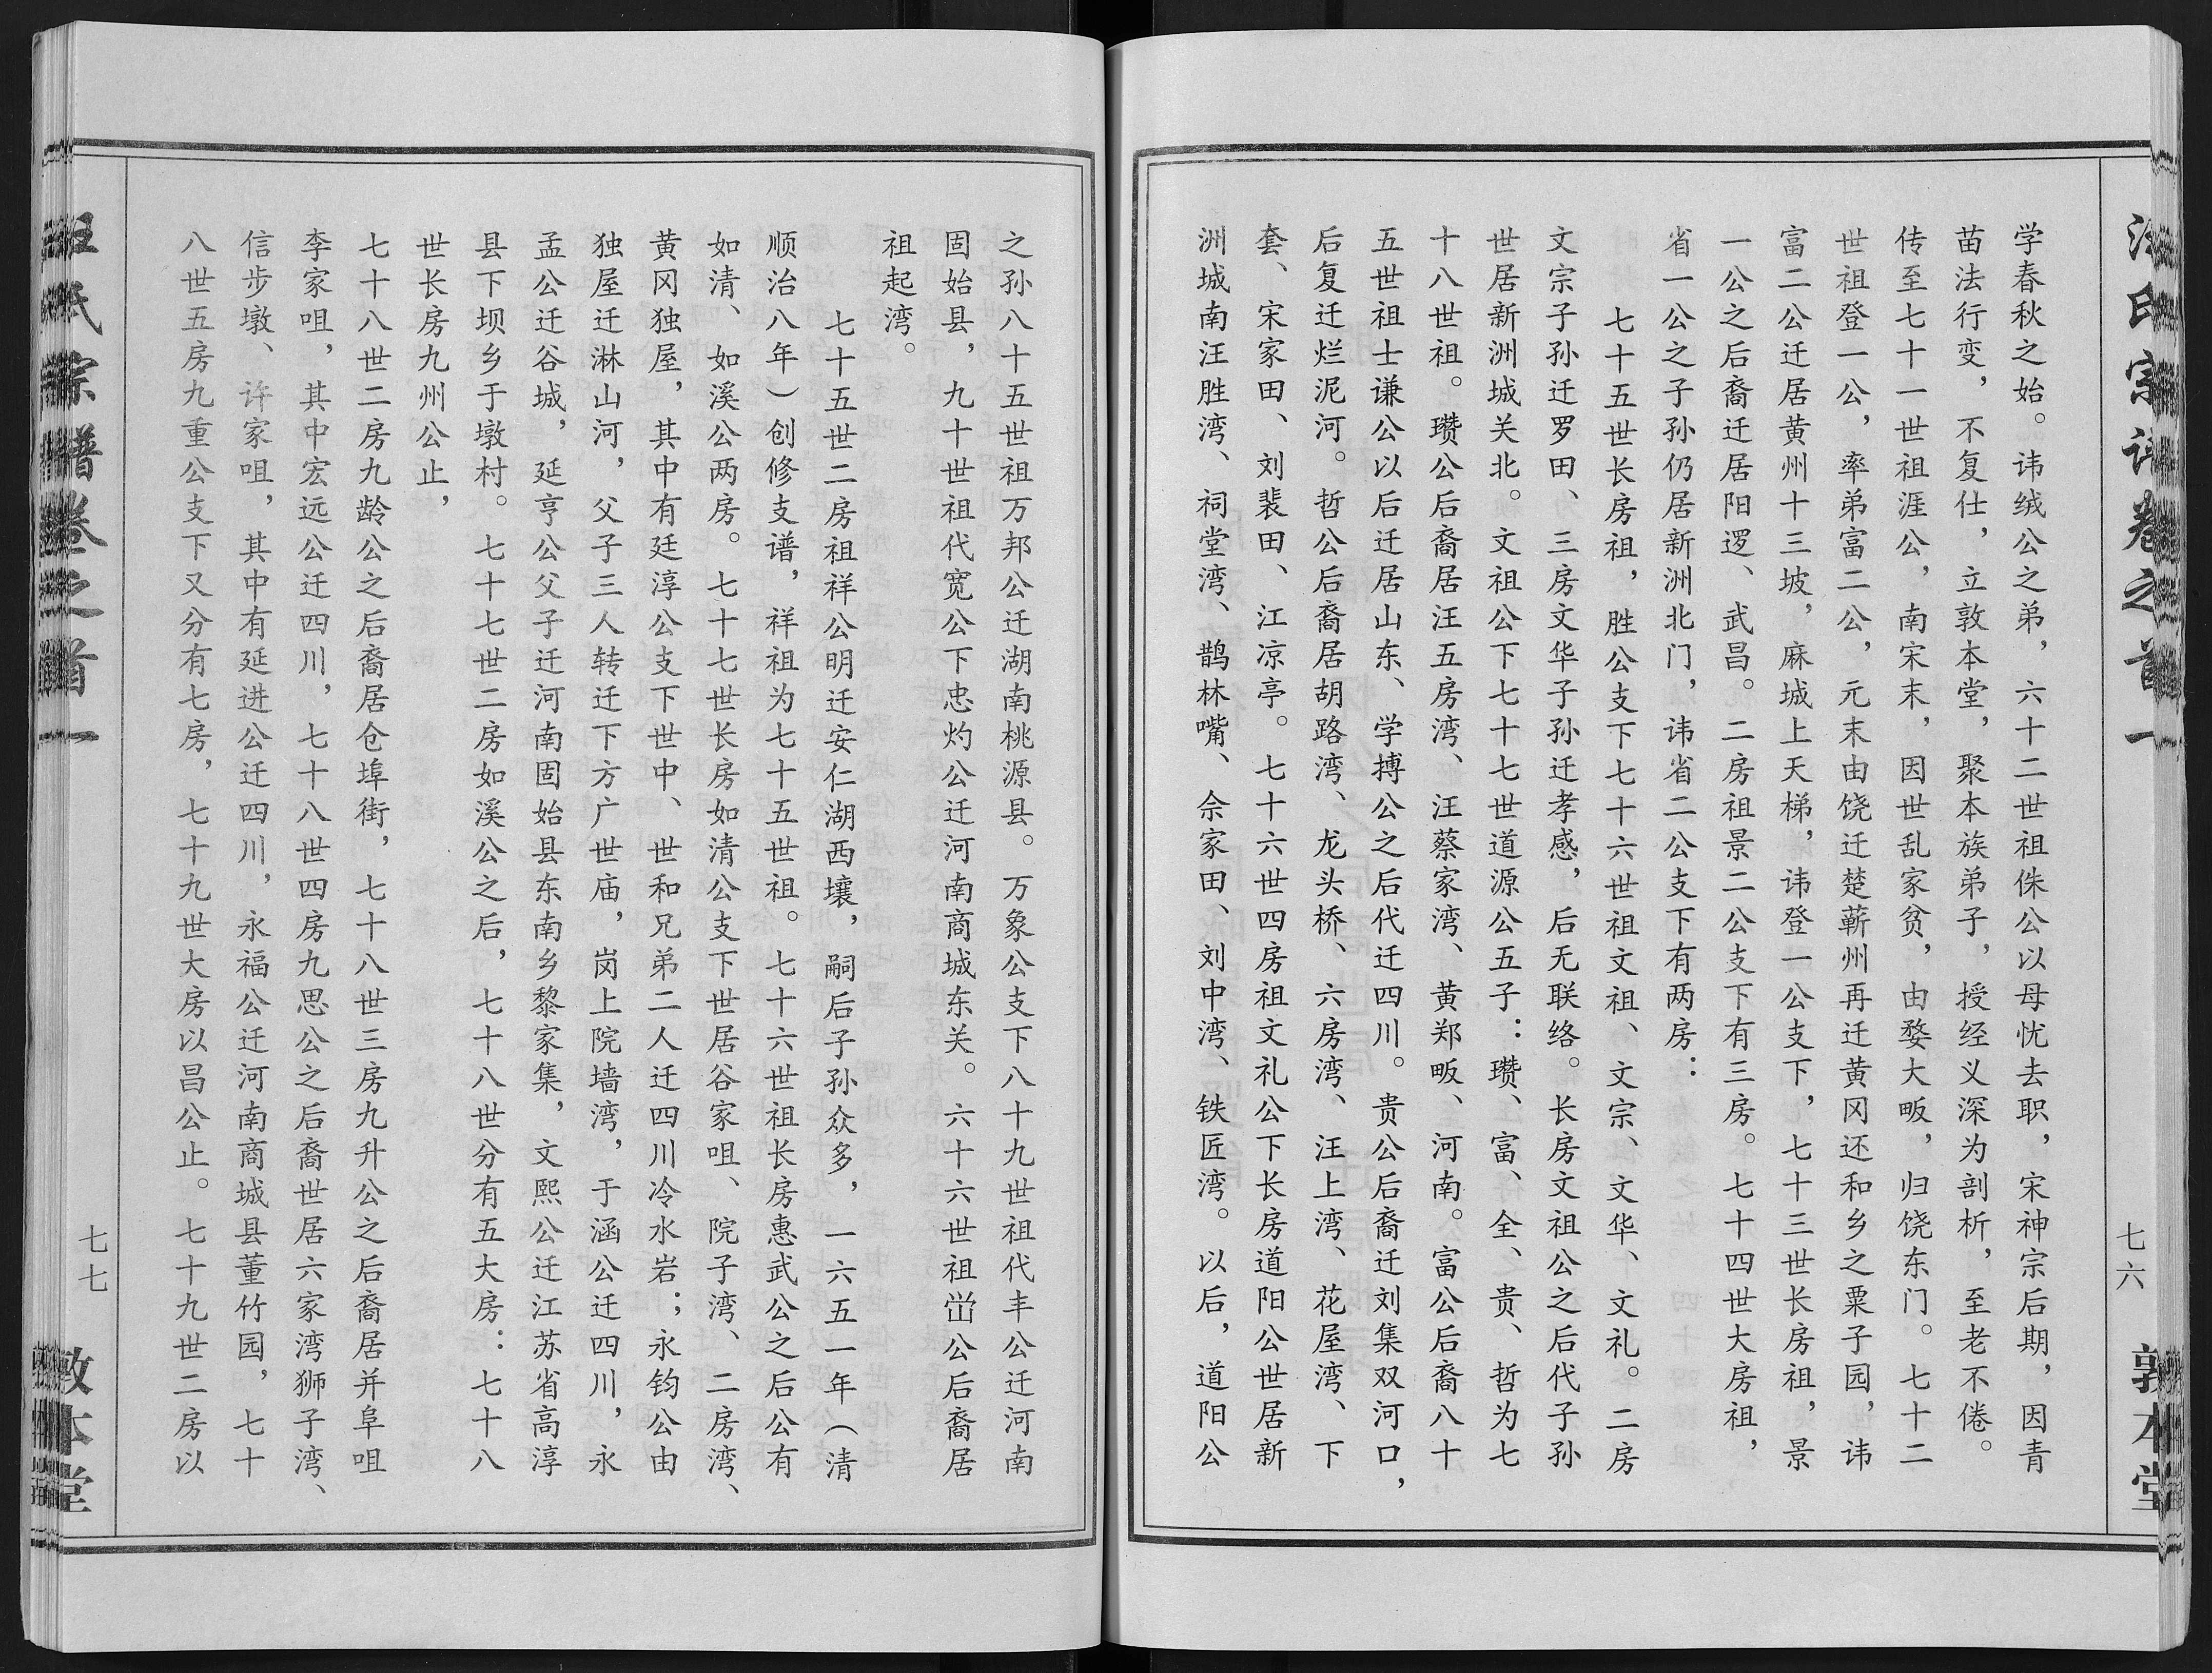 汪氏宗谱卷之首一
七六
敦本堂
学春秋之始。讳绒公之弟，六十二世祖侏公以母忧去职，宋神宗后期，因青
苗法行变，不复仕，立敦本堂，聚本族弟子，授经义深为剖析，至老不倦。
传至七十一世祖涯公，南宋末，因世乱家贫，由婺大畈，归饶东门。七十二
世祖登一公，率弟富二公，元末由饶迁楚蕲州再迁黄冈还和乡之粟子园，讳
富二公迁居黄州十三坡，麻城上天梯，讳登一公支下，七十三世长房祖，景
一公之后裔迁居阳逻、武昌。二房祖景二公支下有三房。七十四世大房祖，
省一公之子孙仍居新洲北门，讳省二公支下有两房：
七十五世长房祖，胜公支下七十六世祖文祖、文宗、文华、文礼。二房
文宗子孙迁罗田、三房文华子孙迁孝感，后无联络。长房文祖公之后代子孙
世居新洲城关北。文祖公下七十七世道源公五子：瓒、富、全、贵、哲为七
十八世祖。瓒公后裔居汪五房湾、汪蔡家湾、黄郑畈、河南。富公后裔八十
五世祖士谦公以后迁居山东、学搏公之后代迁四川。贵公后裔迁刘集双河口，
后复迁烂泥河。哲公后裔居胡路湾、龙头桥、六房湾、汪上湾、花屋湾、下
套、宋家田、刘裴田、江凉亭。七十六世四房祖文礼公下长房道阳公世居新
洲城南汪胜湾、祠堂湾、鹊林嘴、佘家田、刘中湾、铁匠湾。以后，道阳公
之孙八十五世祖万邦公迁湖南桃源县。万象公支下八十九世祖代丰公迁河南
固始县，九十世祖代宽公下忠灼公迁河南商城东关。六十六世祖峃公后裔居
祖起湾。
七十五世二房祖祥公明迁安仁湖西壤，嗣后子孙众多，一六五一年（清
顺治八年）创修支谱，祥祖为七十五世祖。七十六世祖长房惠武公之后公有
如清、如溪公两房。七十七世长房如清公支下世居谷家咀、院子湾、二房湾、
黄冈独屋，其中有廷淳公支下世中、世和兄弟二人迁四川冷水岩；永钧公由
独屋迁淋山河，父子三人转迁下方广世庙，岗上院墙湾，于涵公迁四川，永
孟公迁谷城，延亨公父子迁河南固始县东南乡黎家集，文熙公迁江苏省高淳
县下坝乡于墩村。七十七世二房如溪公之后，七十八世分有五大房：七十八
世长房九州公止，
七十八世二房九龄公之后裔居仓埠街，七十八世三房九升公之后裔居并阜咀
李家咀，其中宏远公迁四川，七十八世四房九思公之后裔世居六家湾狮子湾、
信步墩、许家咀，其中有延进公迁四川，永福公迁河南商城县董竹园，七十
八世五房九重公支下又分有七房，七十九世大房以昌公止。七十九世二房以
汪氏宗谱卷之首一
七七
敦本堂